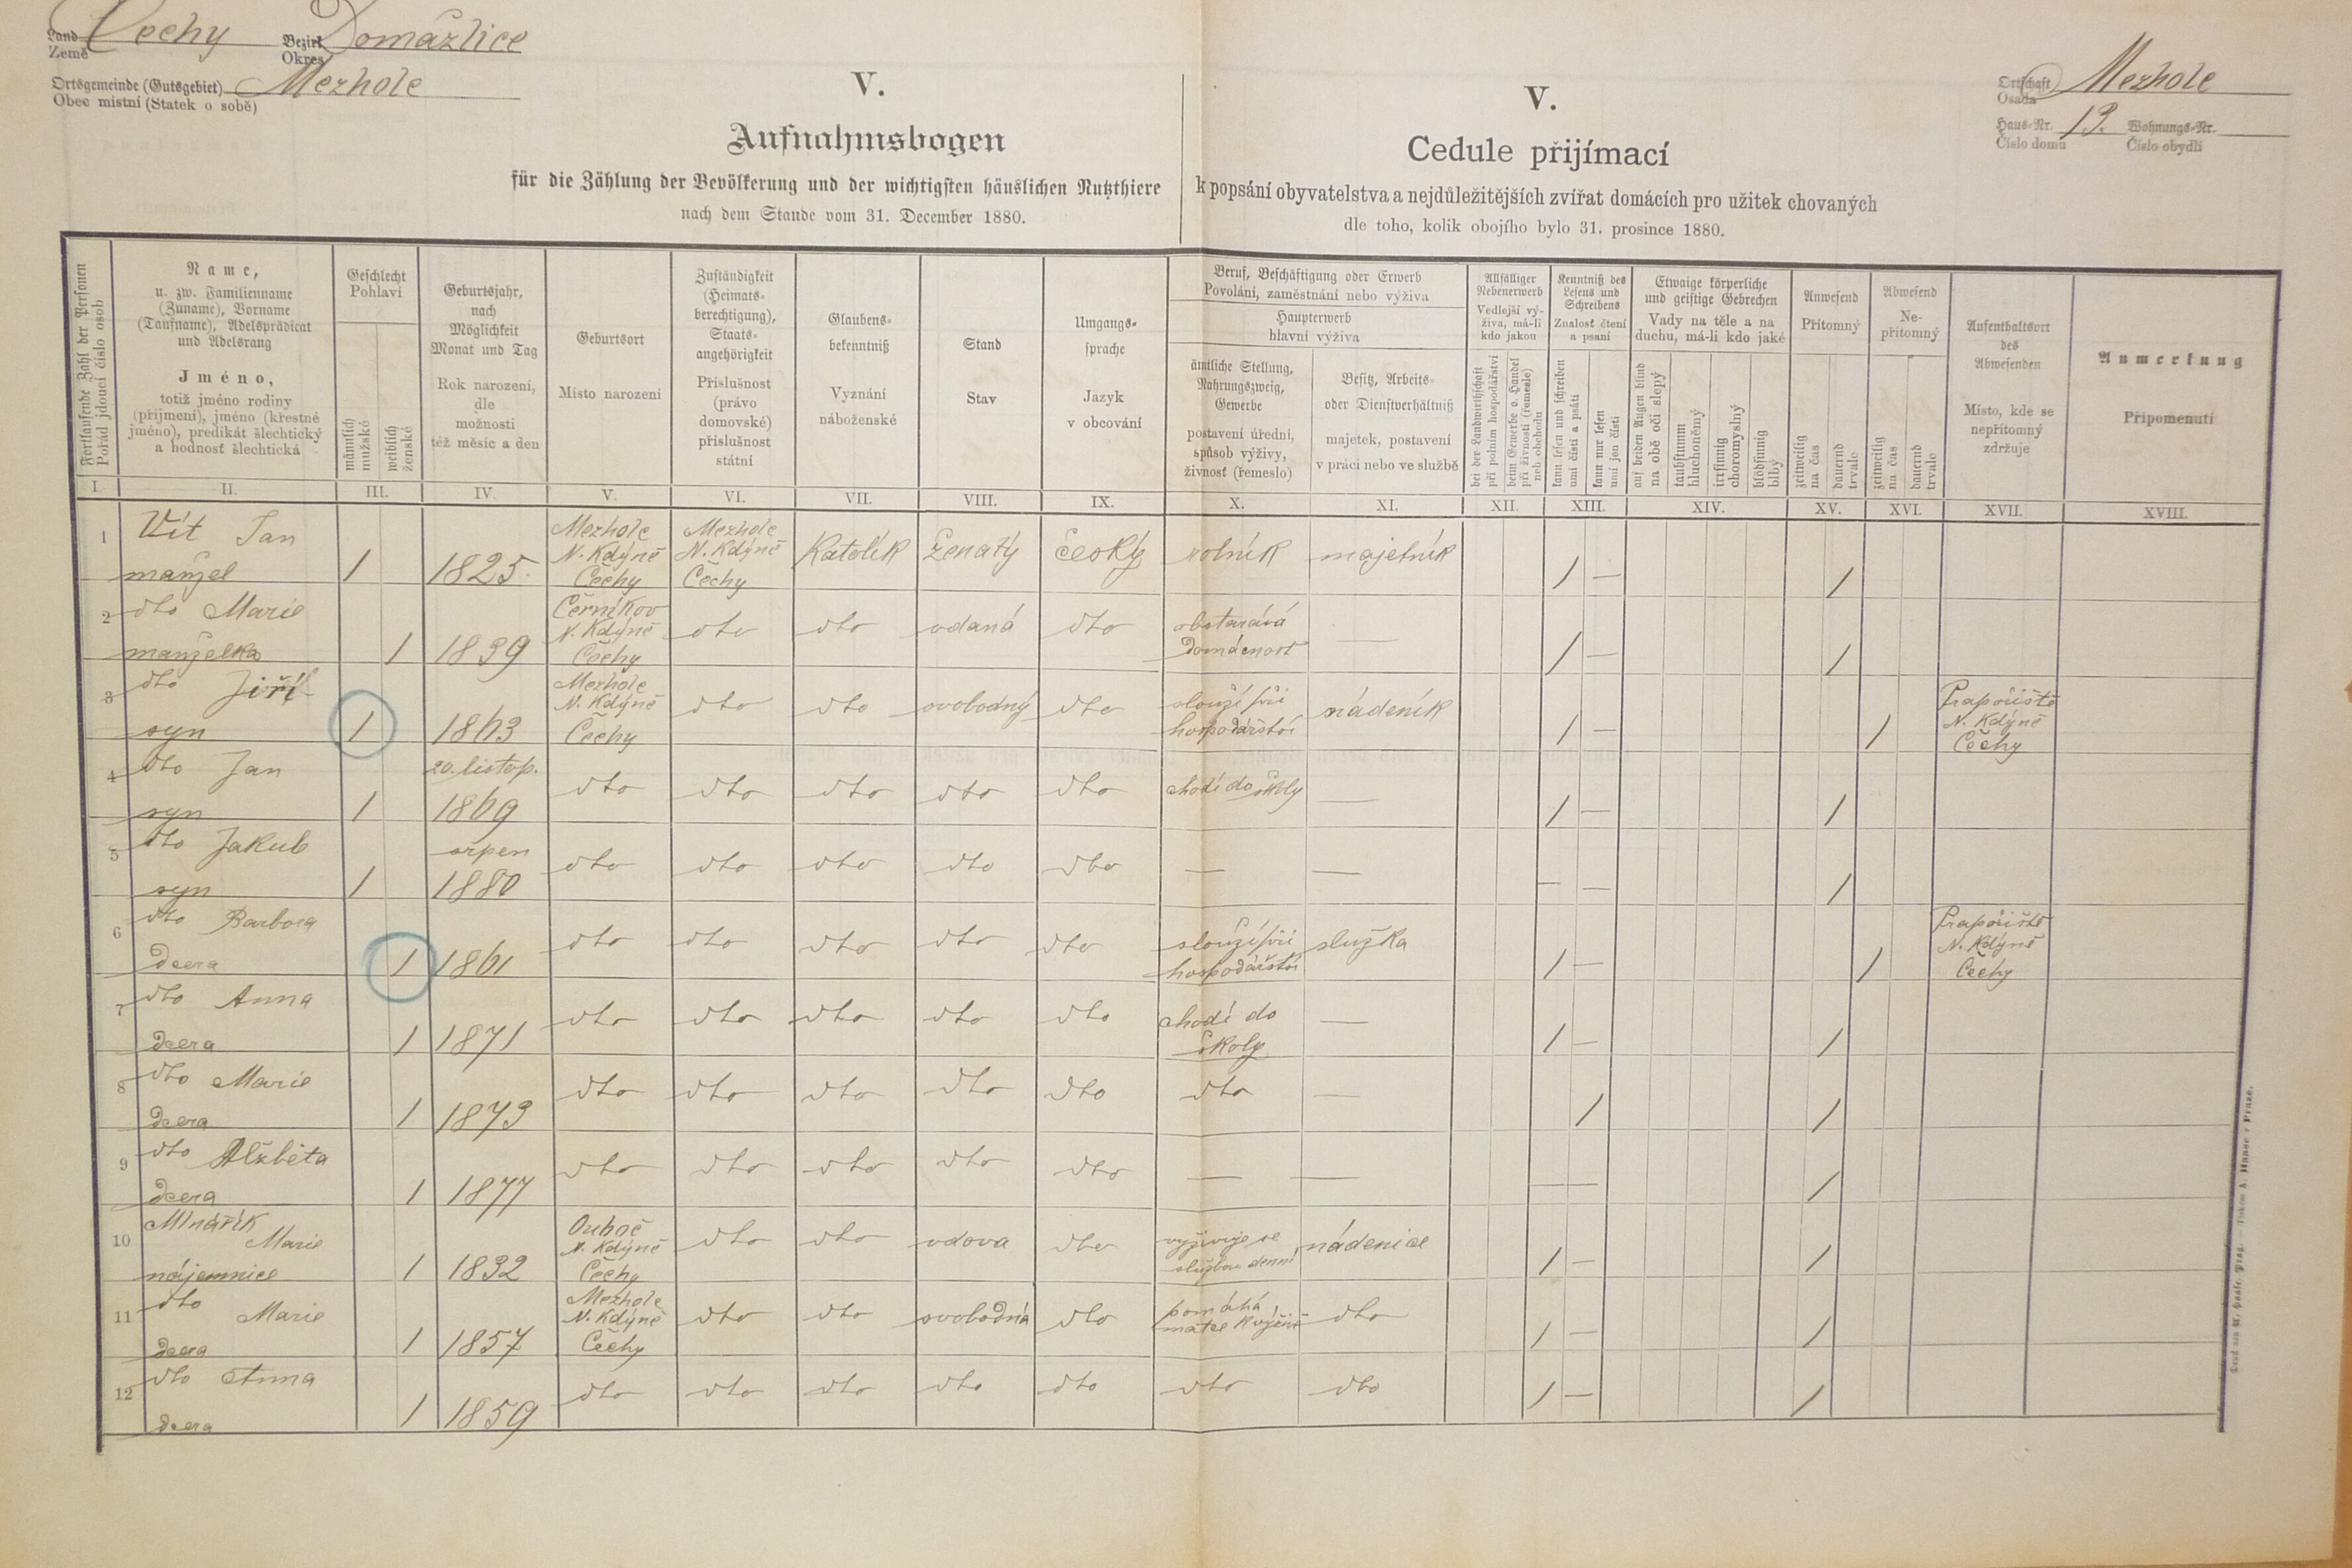 Land Čechy Bezirk Domažlice
Země Okres
Ortsgemeinde (Gutsgebiet) Mezhole
Obec místní (Statek o sobě)
Ortschaft Mezhole
Osada
Haus-Nr. 13. Wohnungs-Nr.
Číslo domu Číslo obydlí
V.
Aufnahmsbogen
für die Zählung der Bevölkerung und der wichtigsten häuslichen Nutzthiere
nach dem Stande vom 31. December 1880.
V.
Cedule přijímací
k popsání obyvatelstva a nejdůležitějších zvířat domácích pro užitek chovaných
dle toho, kolik obojího bylo 31. prosince 1880.
Fortlaufende Zahl der Personen
Pořád jdoucí číslo osob
Name,
u. zw. Familienname
(Zuname), Vorname
(Taufname), Adelsprädicat
und Adelsrang
Jméno,
totiž jméno rodiny
(příjmení), jméno (křestné
jméno), predikát šlechtický
a hodnosť šlechtická
Geschlecht
Pohlaví
männlich
mužské
weiblich
ženské
Geburtsjahr,
nach
Möglichkeit
Monat und Tag
Rok narození,
dle
možnosti
též měsíc a den
Geburtsort
Místo narození
Zuständigkeit
(Heimats-
berechtigung),
Staats-
angehörigkeit
Příslušnost
(právo
domovské)
příslušnost
státní
Glaubens-
bekenntniß
Vyznání
náboženské
Stand
Stav
Umgangs-
sprache
Jazyk
v obcování
Beruf, Beschäftigung oder Erwerb
Povolání, zaměstnání nebo výživa
Haupterwerb
hlavní výživa
ämtliche Stellung,
Nahrungszweig,
Gewerbe
postavení úřední,
spůsob výživy,
živnosť (řemeslo)
Besitz, Arbeits-
oder Dienstverhältniß
majetek, postavení
v práci nebo ve službě
Allfälliger
Nebenerwerb
Vedlejší vý-
živa, má-li
kdo jakou
bei der Landwirthschaft
při polním hospodářství
beim Gewerbe o. Handel
při živnosti (řemesle)
neb obchodu
Kenntniß des
Lesens und
Schreibens
Znalosť čtení
a psaní
kann lesen und schreiben
umí čísti a psáti
kann nur lesen
umí jen čísti
Etwaige körperliche
und geistige Gebrechen
Vady na těle a na
duchu, má-li kdo jaké
auf beiden Augen blind
na obě oči slepý
taubstumm
hluchoněmý
irrsinnig
choromyslný
blödsinnig
blbý
Anwesend
Přítomný
zeitweilig
na čas
dauernd
trvale
Abwesend
Ne-
přítomný
zeitweilig
na čas
dauernd
trvale
Aufenthaltsort
des
Abwesenden
Místo, kde se
nepřítomný
zdržuje
Anmerkung
Připomenutí
I. II. III. IV. V. VI. VII. VIII. IX. X. XI. XII. XIII. XIV. XV. XVI. XVII. XVIII.
1 Vít Jan
manžel 1 1825
Mezhole
N. Kdýně
Čechy
Mezhole
N. Kdýně
Čechy
Katolík ženatý český rolník majetník / — /
2 dto Marie
manželka 1 1839
Černíkov
N. Kdýně
Čechy
dto dto vdaná dto
obstarává
domácnost
— / — /
3 dto Jiří
syn 1 1863
Mezhole
N. Kdýně
Čechy
dto dto svobodný dto
slouží při
hospodářství
nádeník / — /
Prapořiště
N. Kdýně
Čechy
4 dto Jan
syn 1
20. listop.
1869
dto dto dto dto dto chodí do školy — / — /
5 dto Jakub
syn 1
srpen
1880
dto dto dto dto dto — — — — /
6 dto Barbora
dcera 1 1861
dto dto dto dto dto
slouží při
hospodářství
služka / — /
Prapořiště
N. Kdýně
Čechy
7 dto Anna
dcera 1 1871
dto dto dto dto dto
chodí do
školy
— / — /
8 dto Marie
dcera 1 1873
dto dto dto dto dto dto — / /
9 dto Alžběta
dcera 1 1877
dto dto dto dto dto — — — — /
10 Mlnářík
Marie
nájemnice 1 1832
N. Kdýně
Čechy
dto dto vdova dto
vyživuje se
službou denní
nádenice / — /
11 dto Marie
dcera 1 1857
Mezhole
N. Kdýně
Čechy
dto dto svobodná dto
pomáhá
matce
dto / — /
12 dto Anna
dcera 1 1859
dto dto dto dto dto dto dto / — /